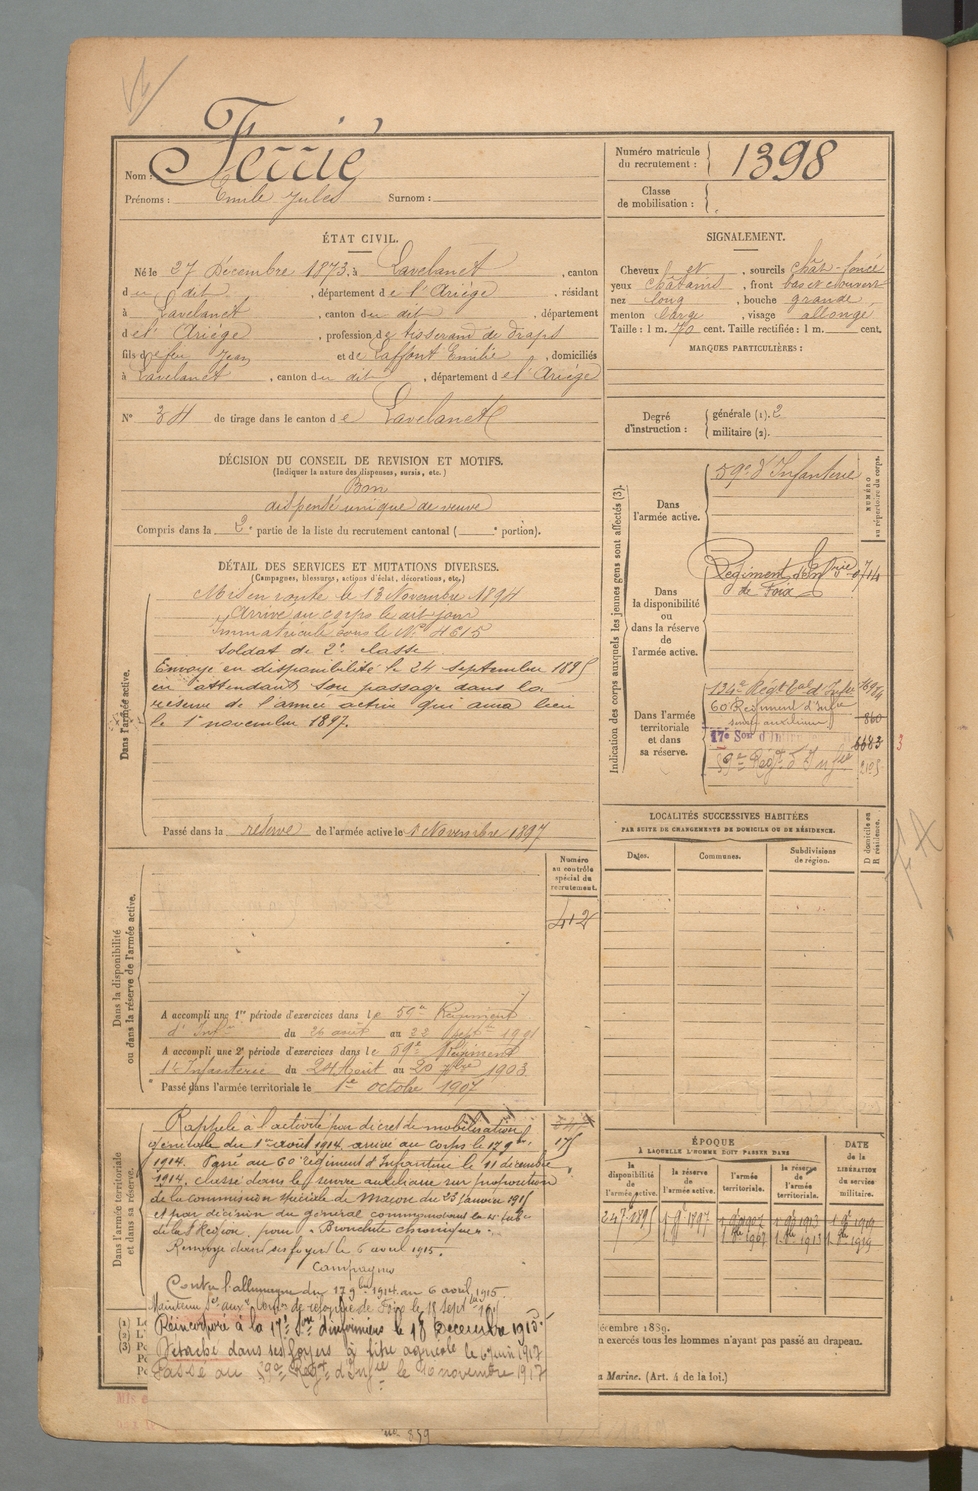 Nom : Ferrié
Prénoms : Emile Jules Surnom :
Numéro matricule du recrutement : 1398
Classe de mobilisation :
ÉTAT CIVIL.
Né le 27 Décembre 1873, à Lavelanet, canton
du dit, département de l'Ariège, résidant
à Lavelanet, canton du dit, département
de l'Ariège, profession de tisserand de draps
fils de feu Jean et de Laffont Emilie, domiciliés
à Lavelanet, canton du dit, département de l'Ariège
N° 34 de tirage dans le canton de Lavelanet
SIGNALEMENT.
Cheveux et, sourcils chât-foncé
yeux châtains, front bas et couvert
nez long, bouche grande,
menton large, visage allongé
Taille : 1 m. 70 cent. Taille rectifiée : 1 m. cent.
MARQUES PARTICULIÈRES :
Degré d'instruction : générale (1). 2
militaire (2).
DÉCISION DU CONSEIL DE REVISION ET MOTIFS.
(Indiquer la nature des dispenses, sursis, etc.)
Bon
dispensé unique de veuve
Compris dans la 2e partie de la liste du recrutement cantonal ( e portion).
DÉTAIL DES SERVICES ET MUTATIONS DIVERSES.
(Campagnes, blessures, actions d'éclat, décorations, etc.)
Dans l'armée active.
Mis en route le 13 Novembre 1894
Arrivé au corps le dit jour
Immatriculé sous le N° 4515
Soldat de 2e classe
Envoyé en disponibilité le 24 septembre 1895
en attendant son passage dans la
réserve de l'armée active qui aura lieu
le 1er novembre 1897.
Passé dans la réserve de l'armée active le 1 Novembre 1897
Indication des corps auxquels les jeunes gens sont affectés (3).
NUMÉRO au répertoire du corps.
Dans l'armée active.
59e d'Infanterie
Dans la disponibilité ou dans la réserve de l'armée active.
Régiment d'Infrie
de Foix
Dans l'armée territoriale et dans sa réserve.
134e Régt tal d'Infie
60 Régiment d'Infie
860
17e Son d'Infir
6683
3
59e Régt d'Infie
LOCALITÉS SUCCESSIVES HABITÉES
PAR SUITE DE CHANGEMENTS DE DOMICILE OU DE RÉSIDENCE.
Dates. Communes. Subdivisions de région. D domicile ou R résidence.
Dans la disponibilité ou dans la réserve de l'armée active.
Numéro au contrôle spécial du recrutement.
412
A accompli une 1re période d'exercices dans le 59e Régiment
d'Infie du 26 août au 22 Septbre 1901
A accompli une 2e période d'exercices dans le 59e Régiment
d'Infanterie du 24 Août au 20 7bre 1903
Passé dans l'armée territoriale le 1er octobre 1907
Dans l'armée territoriale et dans sa réserve.
Rappelé à l'activité par décret de mobilisation
générale du 1er août 1914, arrivé au corps le 17 9bre
1914. Passé au 60 régiment d'Infanterie le 11 décembre
1914, classé dans le service auxiliaire sur proposition
de la commission spéciale de Macon du 23 janvier 1915
et par décision du général commandant la
Région, pour "Bronchite chronique".
Renvoyé dans ses foyers le 6 avril 1915.
Campagne
Contre l'allemagne du 17 9bre 1914 au 6 avril 1915.
Réincorporé à la 17e Son d'infirmiers le 18 Décembre 1915
Détaché dans ses foyers à titre agricole le 6 juin 1917
Passé au 59e Régt d'Infie le 10 novembre 1917
ÉPOQUE
À LAQUELLE L'HOMME DOIT PASSER DANS
la disponibilité de l'armée active. la réserve de l'armée active. l'armée territoriale. la réserve de l'armée territoriale. DATE de la LIBÉRATION du service militaire.
24 7 1895 1 9 1897
(1)
(2)
(3)
décembre 1889.
n exercés tous les hommes n'ayant pas passé au drapeau.
a Marine. (Art. 4 de la loi.)
859